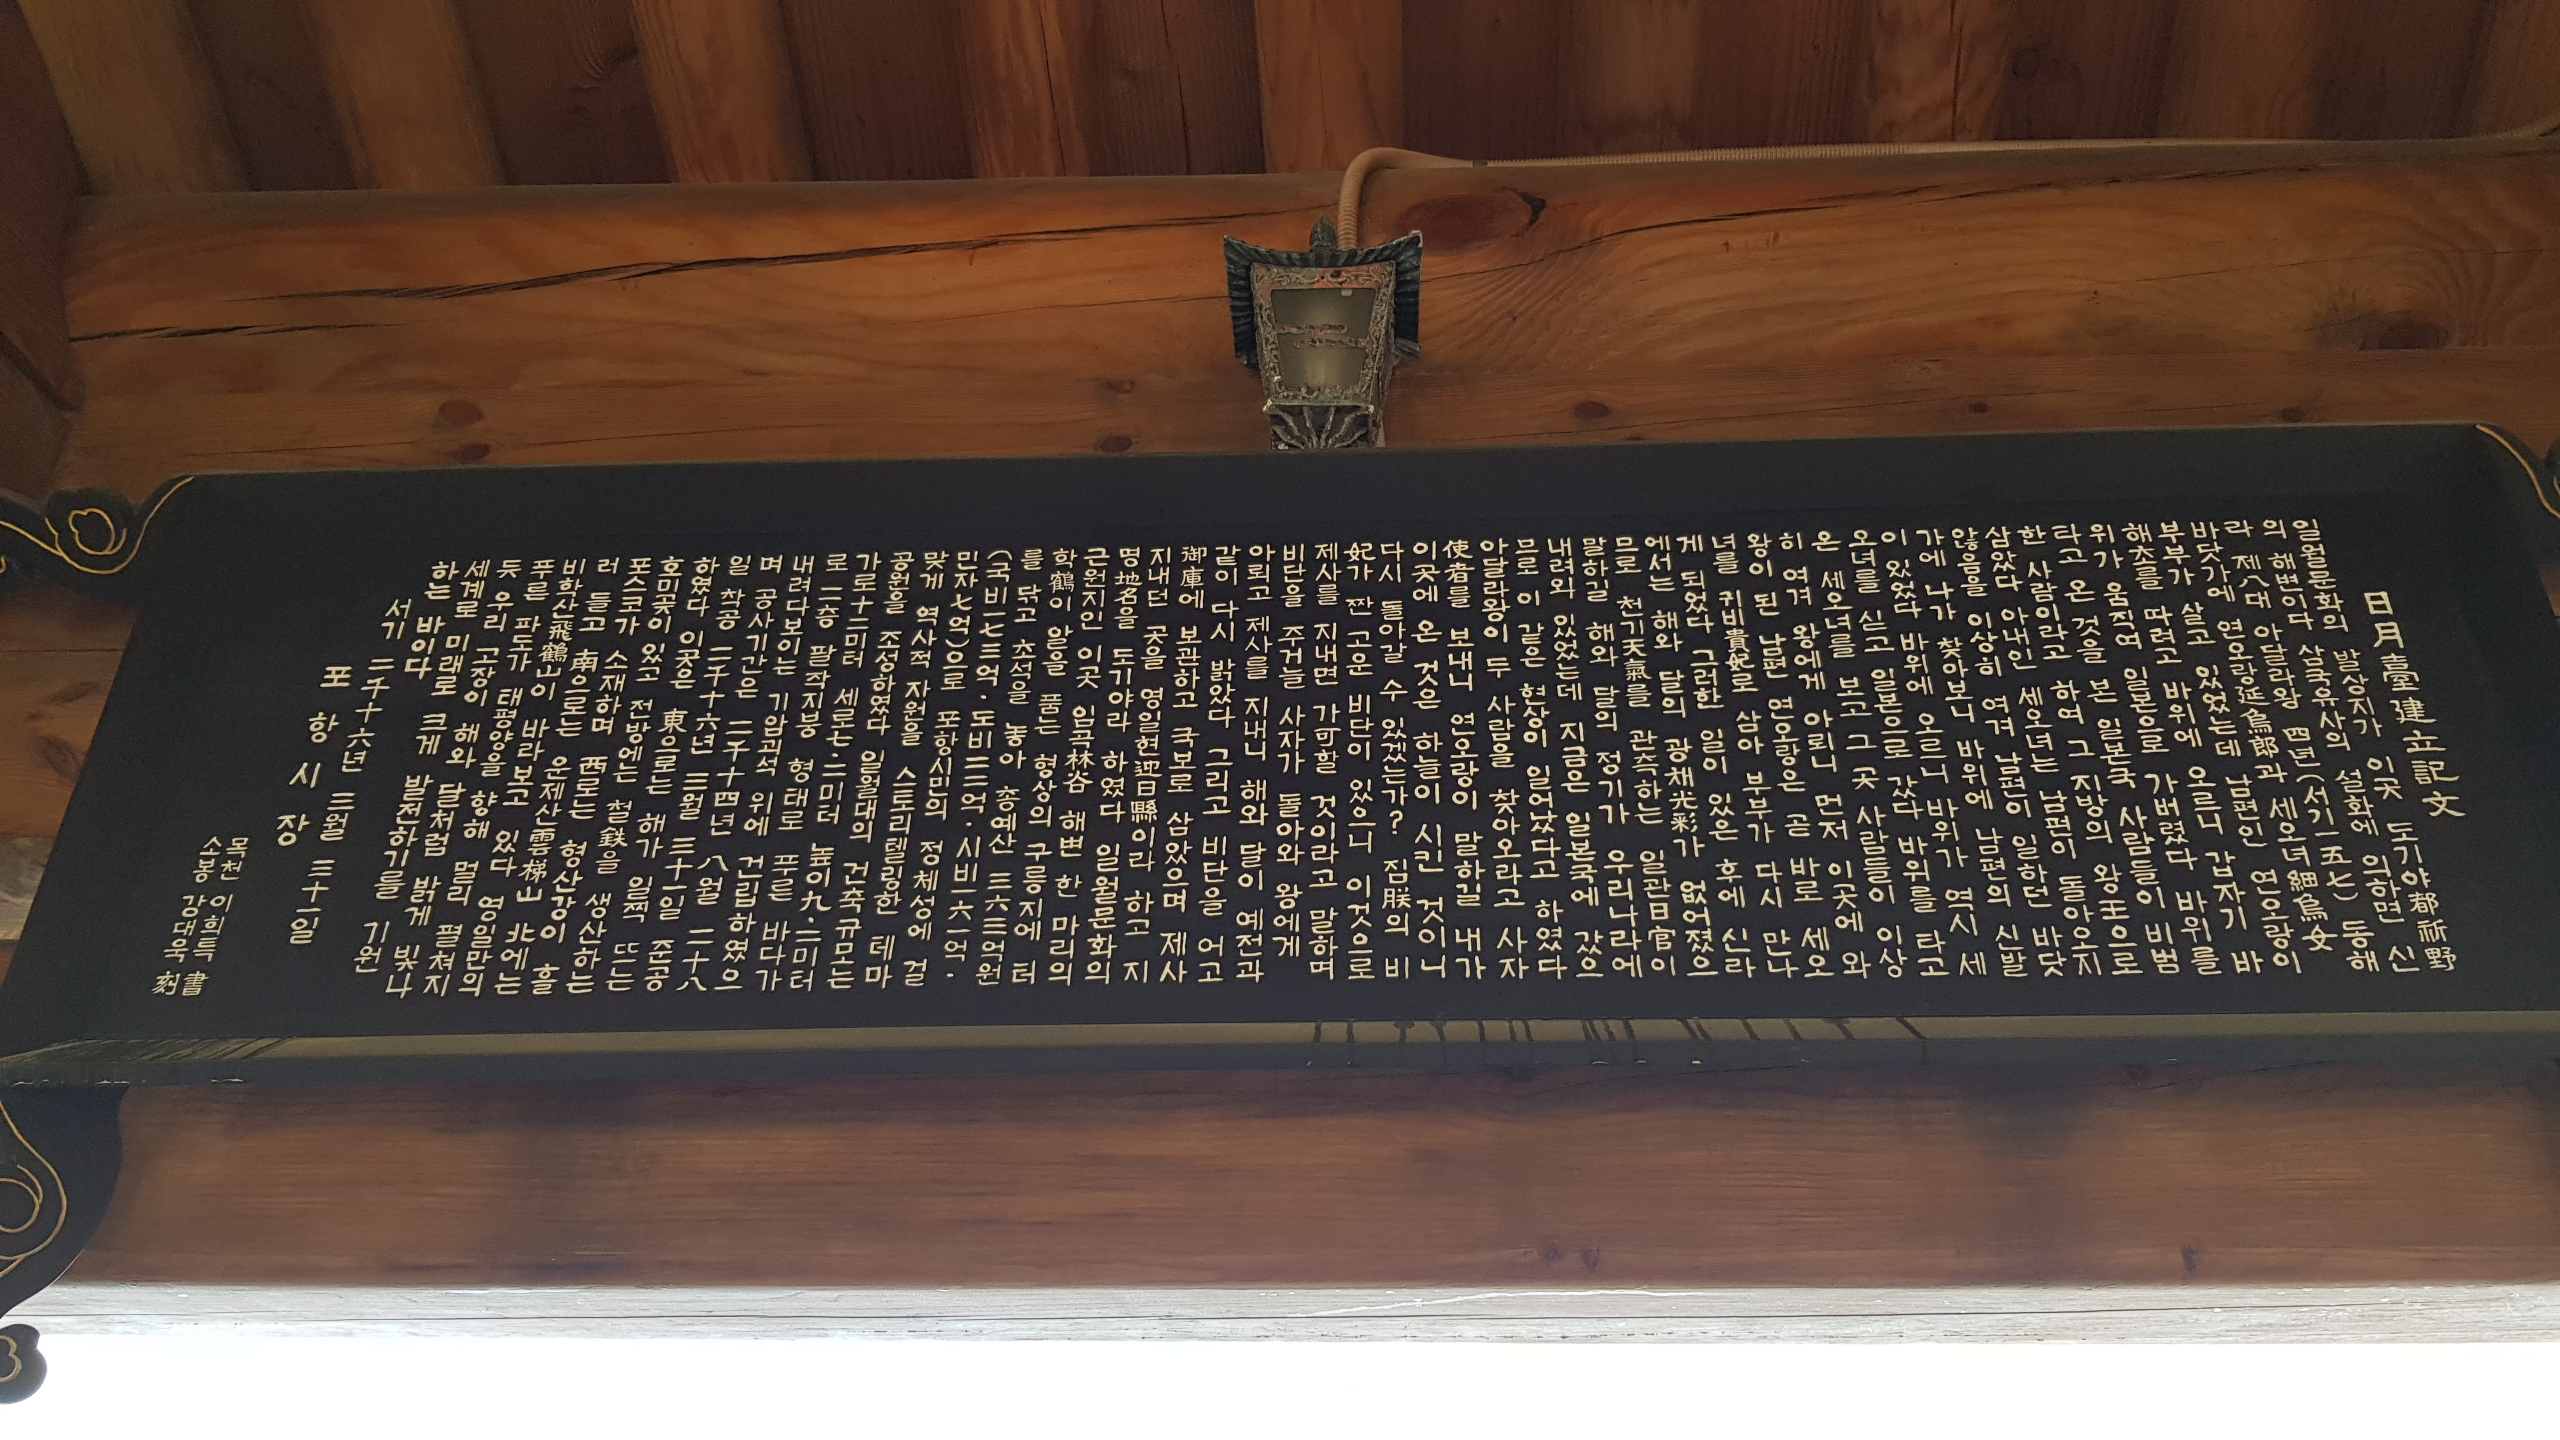 日月臺建立記文
일월문화의 발상지가 이곳 도기야都祈野
의 해변이다 삼국유사의 설화에 의하면 신
라 제八대 아달라왕 四년(서기一五七) 동해
바닷가에 연오랑延烏郎과 세오녀細烏女
부부가 살고 있었는데 남편인 연오랑이
해초를 따려고 바위에 오르니 갑자기 바
위가 움직여 일본으로 가버렸다 바위를
타고 온 것을 본 일본국 사람들이 비범
한 사람이라고 하여 그 지방의 왕王으로
삼았다 아내인 세오녀는 남편이 돌아오지
않음을 이상히 여겨 남편이 일하던 바닷
가에 나가 찾아보니 바위에 남편의 신발
이 있었다 바위에 오르니 바위가 역시 세
오녀를 싣고 일본으로 갔다 바위를 타고
온 세오녀를 보고 그 곳 사람들이 이상
히 여겨 왕에게 아뢰니 먼저 이곳에 와
왕이 된 남편 연오랑은 곧 바로 세오
녀를 귀비貴妃로 삼아 부부가 다시 만나
게 되었다 그러한 일이 있은 후에 신라
에서는 해와 달의 광채光彩가 없어졌으
므로 천기天氣를 관측하는 일관日官이
말하길 해와 달의 정기가 우리나라에
내려와 있었는데 지금은 일본국에 갔으
므로 이 같은 현상이 일어났다고 하였다
아달라왕이 두 사람을 찾아오라고 사자
使者를 보내니 연오랑이 말하길 내가
이곳에 온 것은 하늘이 시킨 것이니
다시 돌아갈 수 있겠는가? 짐朕의 비
妃가 짠 고운 비단이 있으니 이것으로
제사를 지내면 가可할 것이라고 말하며
비단을 주거늘 사자가 돌아와 왕에게
아뢰고 제사를 지내니 해와 달이 예전과
같이 다시 밝았다 그리고 비단을 어고
御庫에 보관하고 국보로 삼았으며 제사
지내던 곳을 영일현迎日縣이라 하고 지
명地名을 도기야라 하였다 일월문화의
근원지인 이곳 임곡林谷 해변 한 마리의
학鶴이 알을 품는 형상의 구릉지에 터
를 닦고 초석을 놓아 총예산 三六三억원
(국비一七三억·도비二二억·시비一六一억·
민자七억)으로 포항시민의 정체성에 걸
맞게 역사적 자원을 스토리텔링한 테마
공원을 조성하였다 일월대의 건축규모는
가로十二미터 세로七·二미터 높이九·二미터
로 二층 팔작지붕 형태로 푸른 바다가
내려다보이는 기암괴석 위에 건립하였으
며 공사기간은 二千十四년 八월 二十八
일 착공 二千十六년 三월 三十一일 준공
하였다 이곳은 東으로는 해가 일찍 뜨는
호미곶이 있고 전방에는 철鉄을 생산하는
포스코가 소재하며 西로는 형산강이 흘
러 들고 南으로는 운제산雲梯山 北에는
비학산飛鶴山이 바라보고 있다 영일만의
푸른 파도가 태평양을 향해 멀리 펼쳐지
듯 우리 고장이 해와 달처럼 밝게 빛나
세계로 미래로 크게 발전하기를 기원
하는 바이다
서기 二千十六년 三월 三十一일
포항시장
목천 이희특 書
소봉 강대욱 刻